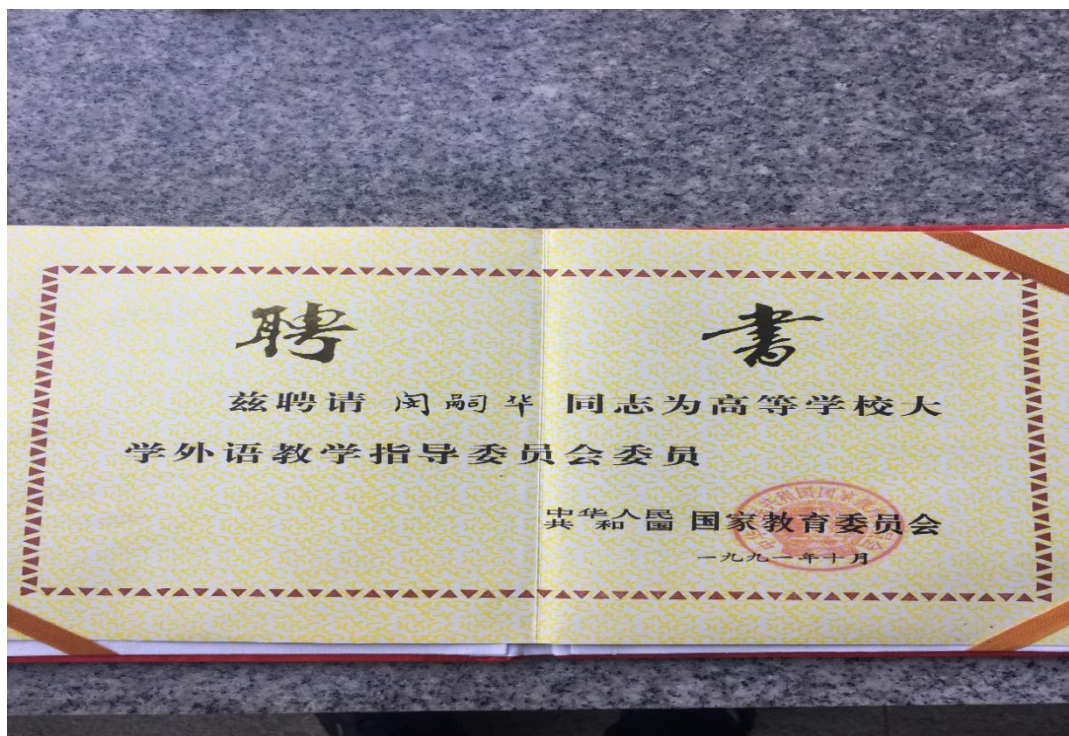 聘书
兹聘请 闵嗣华 同志为高等学校大
学外语教学指导委员会委员
中华人民共和国 国家教育委员会
一九九一年十月